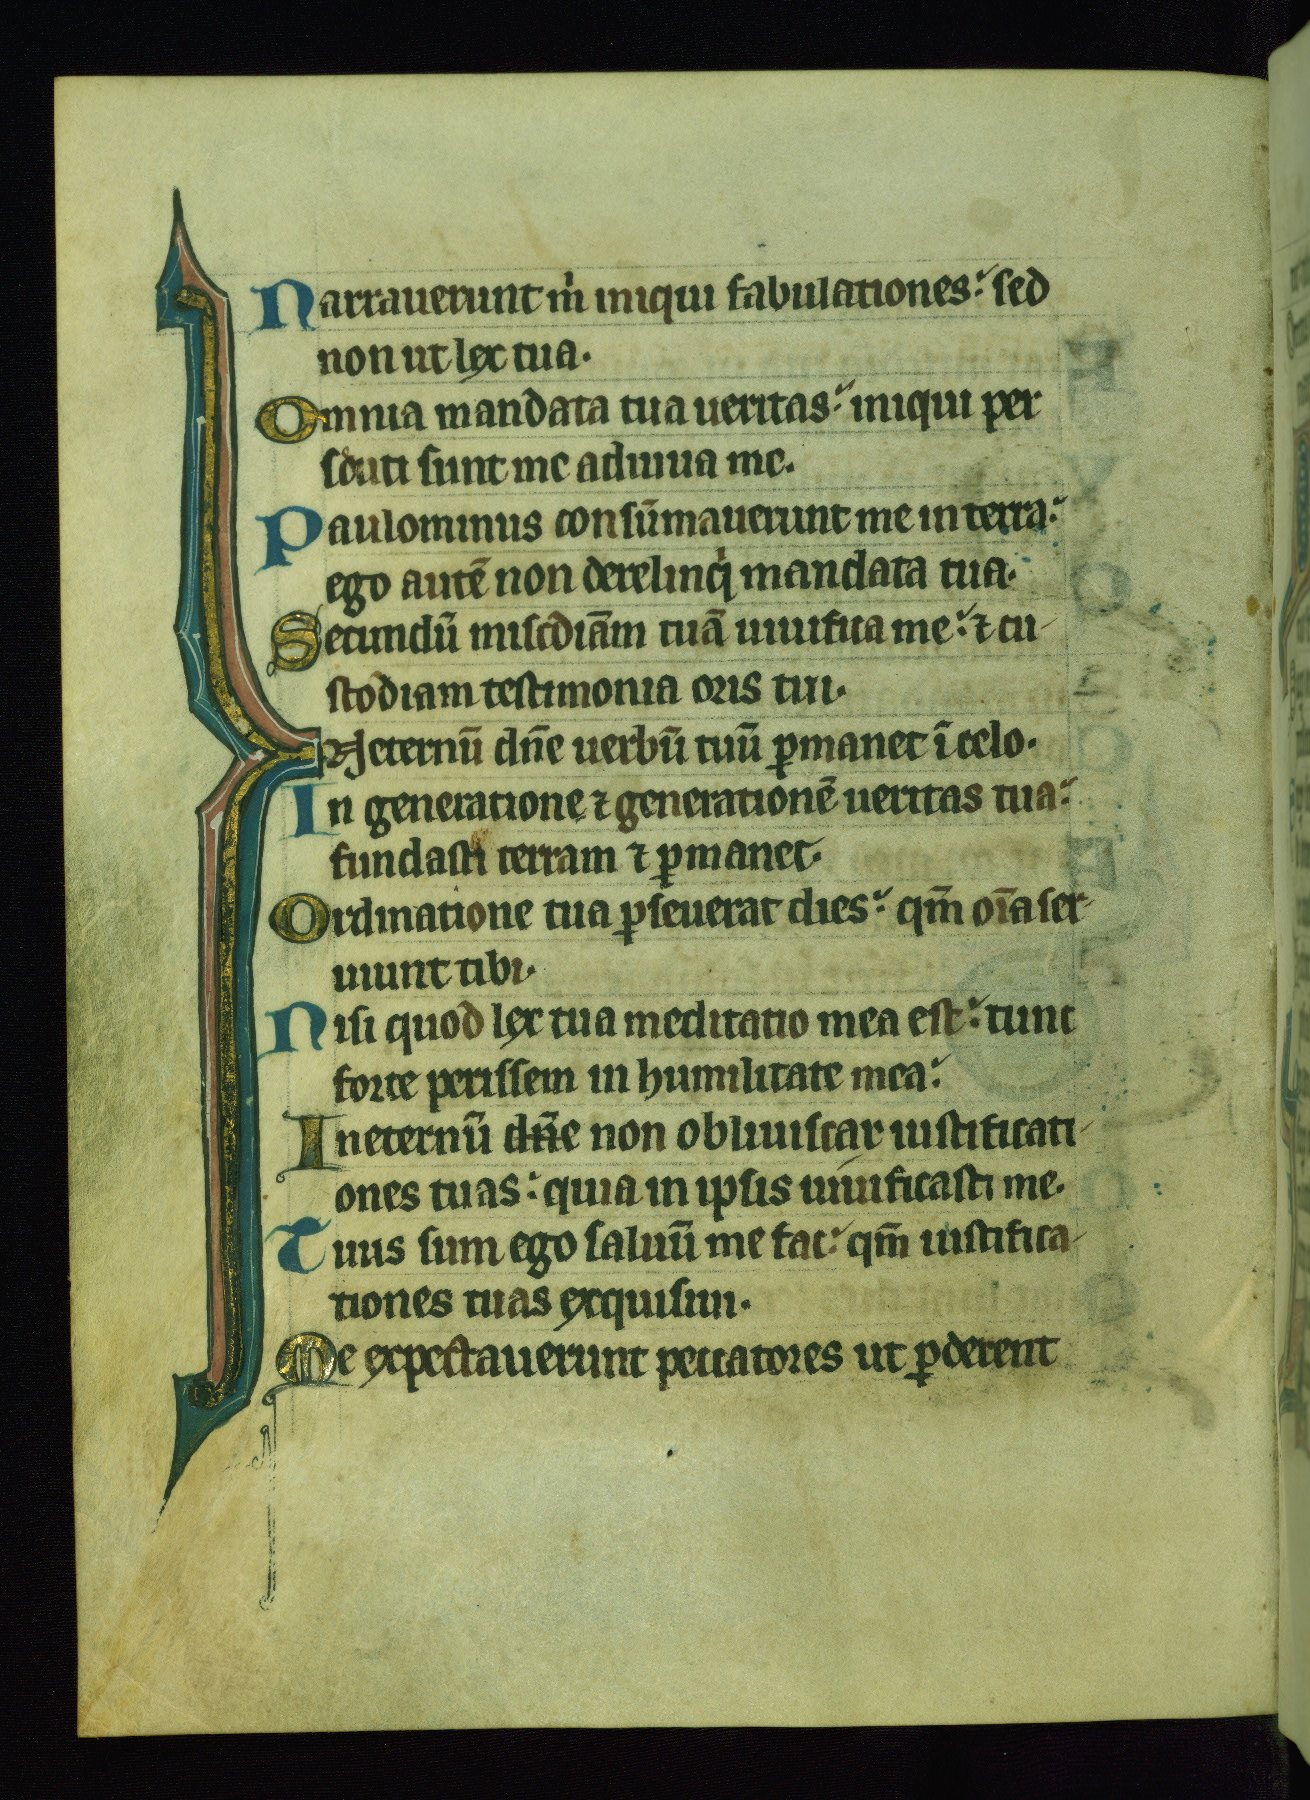 Narrauerunt m̍ iniqui fabulationes: sed
non ut lex tua.
Omnia mandata tua ueritas: iniqui per
secuti sunt me adiuua me.
Paulominus consūmauerunt me in terra:
ego autē non derelinq̍ mandata tua.
Secundū misc̄diām tuā uiuifica me: ⁊ cu-
stodiam testimonia oris tui.
IN eternū dn̄e uerbū tuū ꝑmanet ī celo.
In generatione ⁊ generationē ueritas tua:
fundasti terram ⁊ ꝑmanet.
Ordinatione tua ꝑseuerat dies: qm̄ oīa ser-
uiunt tibi.
Nisi quod lex tua meditatio mea est: tunc
forte perissem in humilitate mea:
In eternū dn̄e non obliuiscar iustificati-
ones tuas: quia in ipsis uiuificasti me.
Tuus sum ego saluū me fac: qm̄ iustifica-
tiones tuas exquisiui.
Me expectauerunt peccatores ut ꝑderent